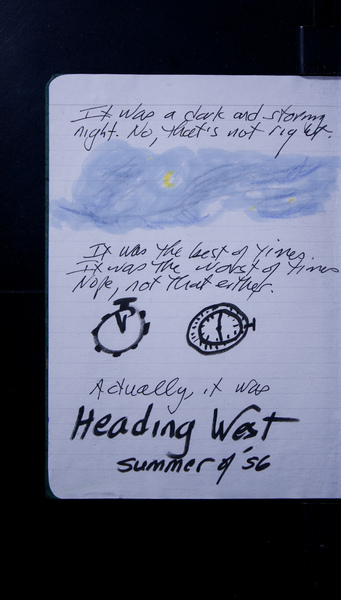 It was a dark and stormy
night. No, that's not right.
It was the best of times.
It was the worst of times
Nope, not that either.
Actually, it was
Heading West
summer of '56